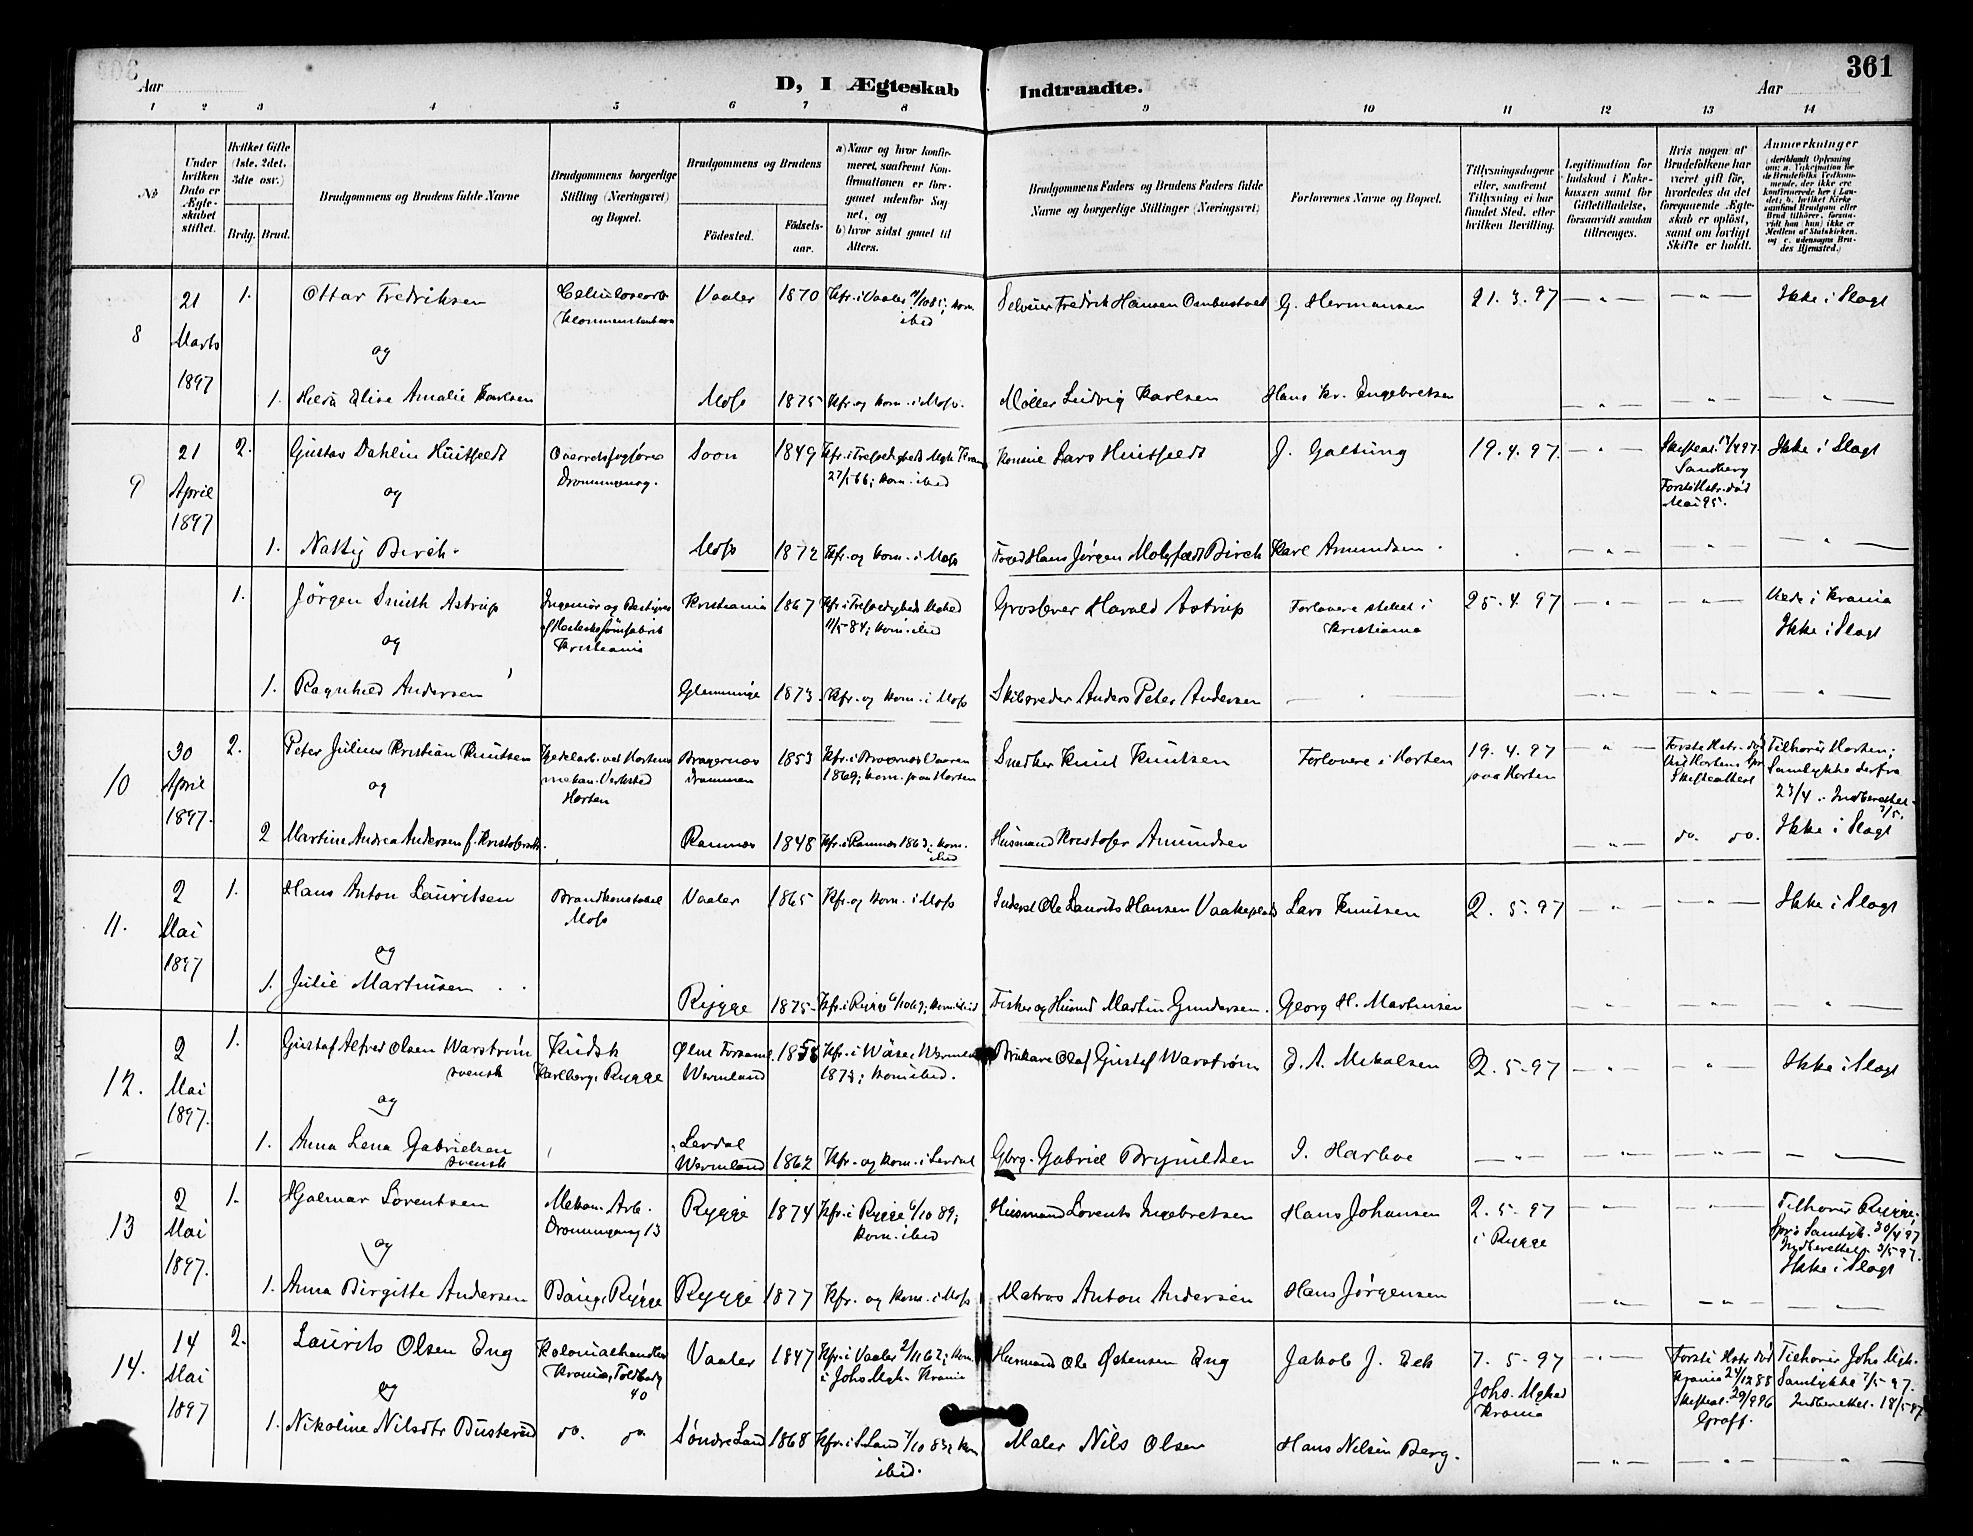 361
Aar
D, I Ægteskab Indtraadte.
Aar
1 2 3 4 5 6 7 8 9 10 11 12 13 14
No
Under hvilken Dato er Ægteskabet stiftet.
Hvilket Gifte (1ste, 2det, 3die osv.)
Brdg. Brud.
Brudgommens og Brudens fulde Navne
Brudgommens borgerlige Stilling (Næringsvei) og Bopæl.
Brudgommens og Brudens
Fødested.
Fødselsaar.
a) Naar og hvor konfirmeret, saafremt Konfirmationen er foregaaet udenfor Sognet, og
b) hvor sidst gaaet til Alters.
Brudgommens Faders og Brudens Faders fulde Navne og borgerlige Stillinger (Næringsvei)
Forlovernes Navne og Bopæl.
Tillysningsdagene eller, saafremt Tillysning ei har fundet Sted, efter hvilken Bevilling.
Legitimation for Indskud i Enkekassen samt for Giftetilladelse, forsaavidt saadan tiltrænges.
Hvis nogen af Brudefolkene har været gift før, hvorledes da det foregaaende Ægteskab er opløst, samt om lovligt Skifte er holdt.
Anmærkninger
8
21 Marts 1897
1. Ottar Fredriksen
Vaaler 1870
G. Hermansen 21.3.97 Ikke i Slægt
og
1. Hilda Elise Amalie Karlsen
Moss 1875 Kfr. og kom. i Moss.
Møller Ludvig Karlsen
Hans Kr. Engebretsen
9
21 April 1897
2. Gustav Dahlin Huitfeldt
Overretssagfører
Dronningensg.
Soon 1849
27/5 66; kom. ibid
Lars Huitfeldt
J. Galtung
19.4.97
Skifteat. 17/4 97. Sandberg
Første Hstr. død Mai 95.
Ikke i Slægt
og
1. Birch
Moss 1872 Kfr. og kom. i Moss
Foged Hans Jørgen Birch
Karl Amundsen
1. Jørgen Smith Astrup
Ingeniør og Bestyrer af Hesteskosømfabrik Kristiania
Kristiania 1867
11/5 84; kom. ibid
Grosserer Harald Astrup
Forlovere stillet i Kristiania
25.4.97
Viede i Krania
Ikke i Slægt
og
1. Ragnhild Andersen
Glemminge 1873 Kfr. og kom. i Moss
Skibsreder Anders Peter Andersen
10
30 April 1897.
2. Peter Julius Kristian Knutsen
Kjedelarb. ved Hortens mekan. Verksted Horten
Bragernæs Drammen 1853
1869; kom. paa Horten
Snedker Knut Knutsen
Forlovere i Horten
19.4.97 paa Horten
Tilhører Horten;
Samtykke derfra 23/4. Indberettet 3/5.
Ikke i Slægt
og
2 Martine Andrea Andersen f. Kristofersdtr.
Ramnæs 1848 Kfr. i Ramnæs 1863; kom. ibid
Husmand Kristofer Amundsen
do. do.
11.
2 Mai 1897
1. Hans Anton Lauritsen
Brandkonstabel Moss
Vaaler 1865 Kfr. og kom. i Moss
Inderst Ole Laurits Hansen
Lars Knutsen
2.5.97
Ikke i Slægt
og
1. Julie Martinsen
Rygge 1875
Fisker og Husmd Martin Gundersen.
Georg H. Martinsen
12.
2 Mai 1897.
1. Gustaf Alfred Olsen Warstrøm
svensk
Kudsk
Karlberg, Rygge
Ølme Forsaml. Wermland
Olof Gustaf Warstrøm
E. A. Mikalsen
2.5.97
Ikke i Slægt
og
1. Anna Lena Gabrielsen
svensk
Lerdal Wermland 1862 Kfr. og kom. i Lerdal
Gbrg. Gabriel Brynildsen
I. Harboe
13
2 Mai 1897.
1. Hjalmar Lorentsen
Mekan. Arb.
Dronningensg 13
Rygge 1874 Kfr. i Rygge 6/10 89; kom. ibid
Husmand Lorents Ingebretsen
Hans Johansen
2.5.97 i Rygge
Tilhører Rygge.
Spr's Samtyk. 30/4 97
Indberettet 3/5 97.
Ikke i Slægt
og
1. Anna Birgitte Andersen
Rygge
Rygge 1877 Kfr. og kom. i Moss
Matros Anton Andersen
Hans Jørgensen
14.
14 Mai 1897
2. Laurits Olsen Eng
Kolonialhandler
Krania, Toldbodg 40
Vaaler 1847 Kfr. i Vaaler 2/11 62; kom. i Johs Mgh. Krania
Husmand Ole Østensen Eng
Jakob J. Eek
7.5.97
Johs. Mghed Krania
Første Hstr død Krania 24/12 88
Skifteat. 29/9 96
Graff.
Tilhører Johs Mgh.
Samtykke 7/5 97.
Indberettet 18/5 97
og
1. Nikoline Nilsdtr Busterud
do. do
Søndre Land 1868 Kfr. i S. Land 7/10 83; kom ibid.
Maler Nils Olsen
Hans Nilsen Berg.